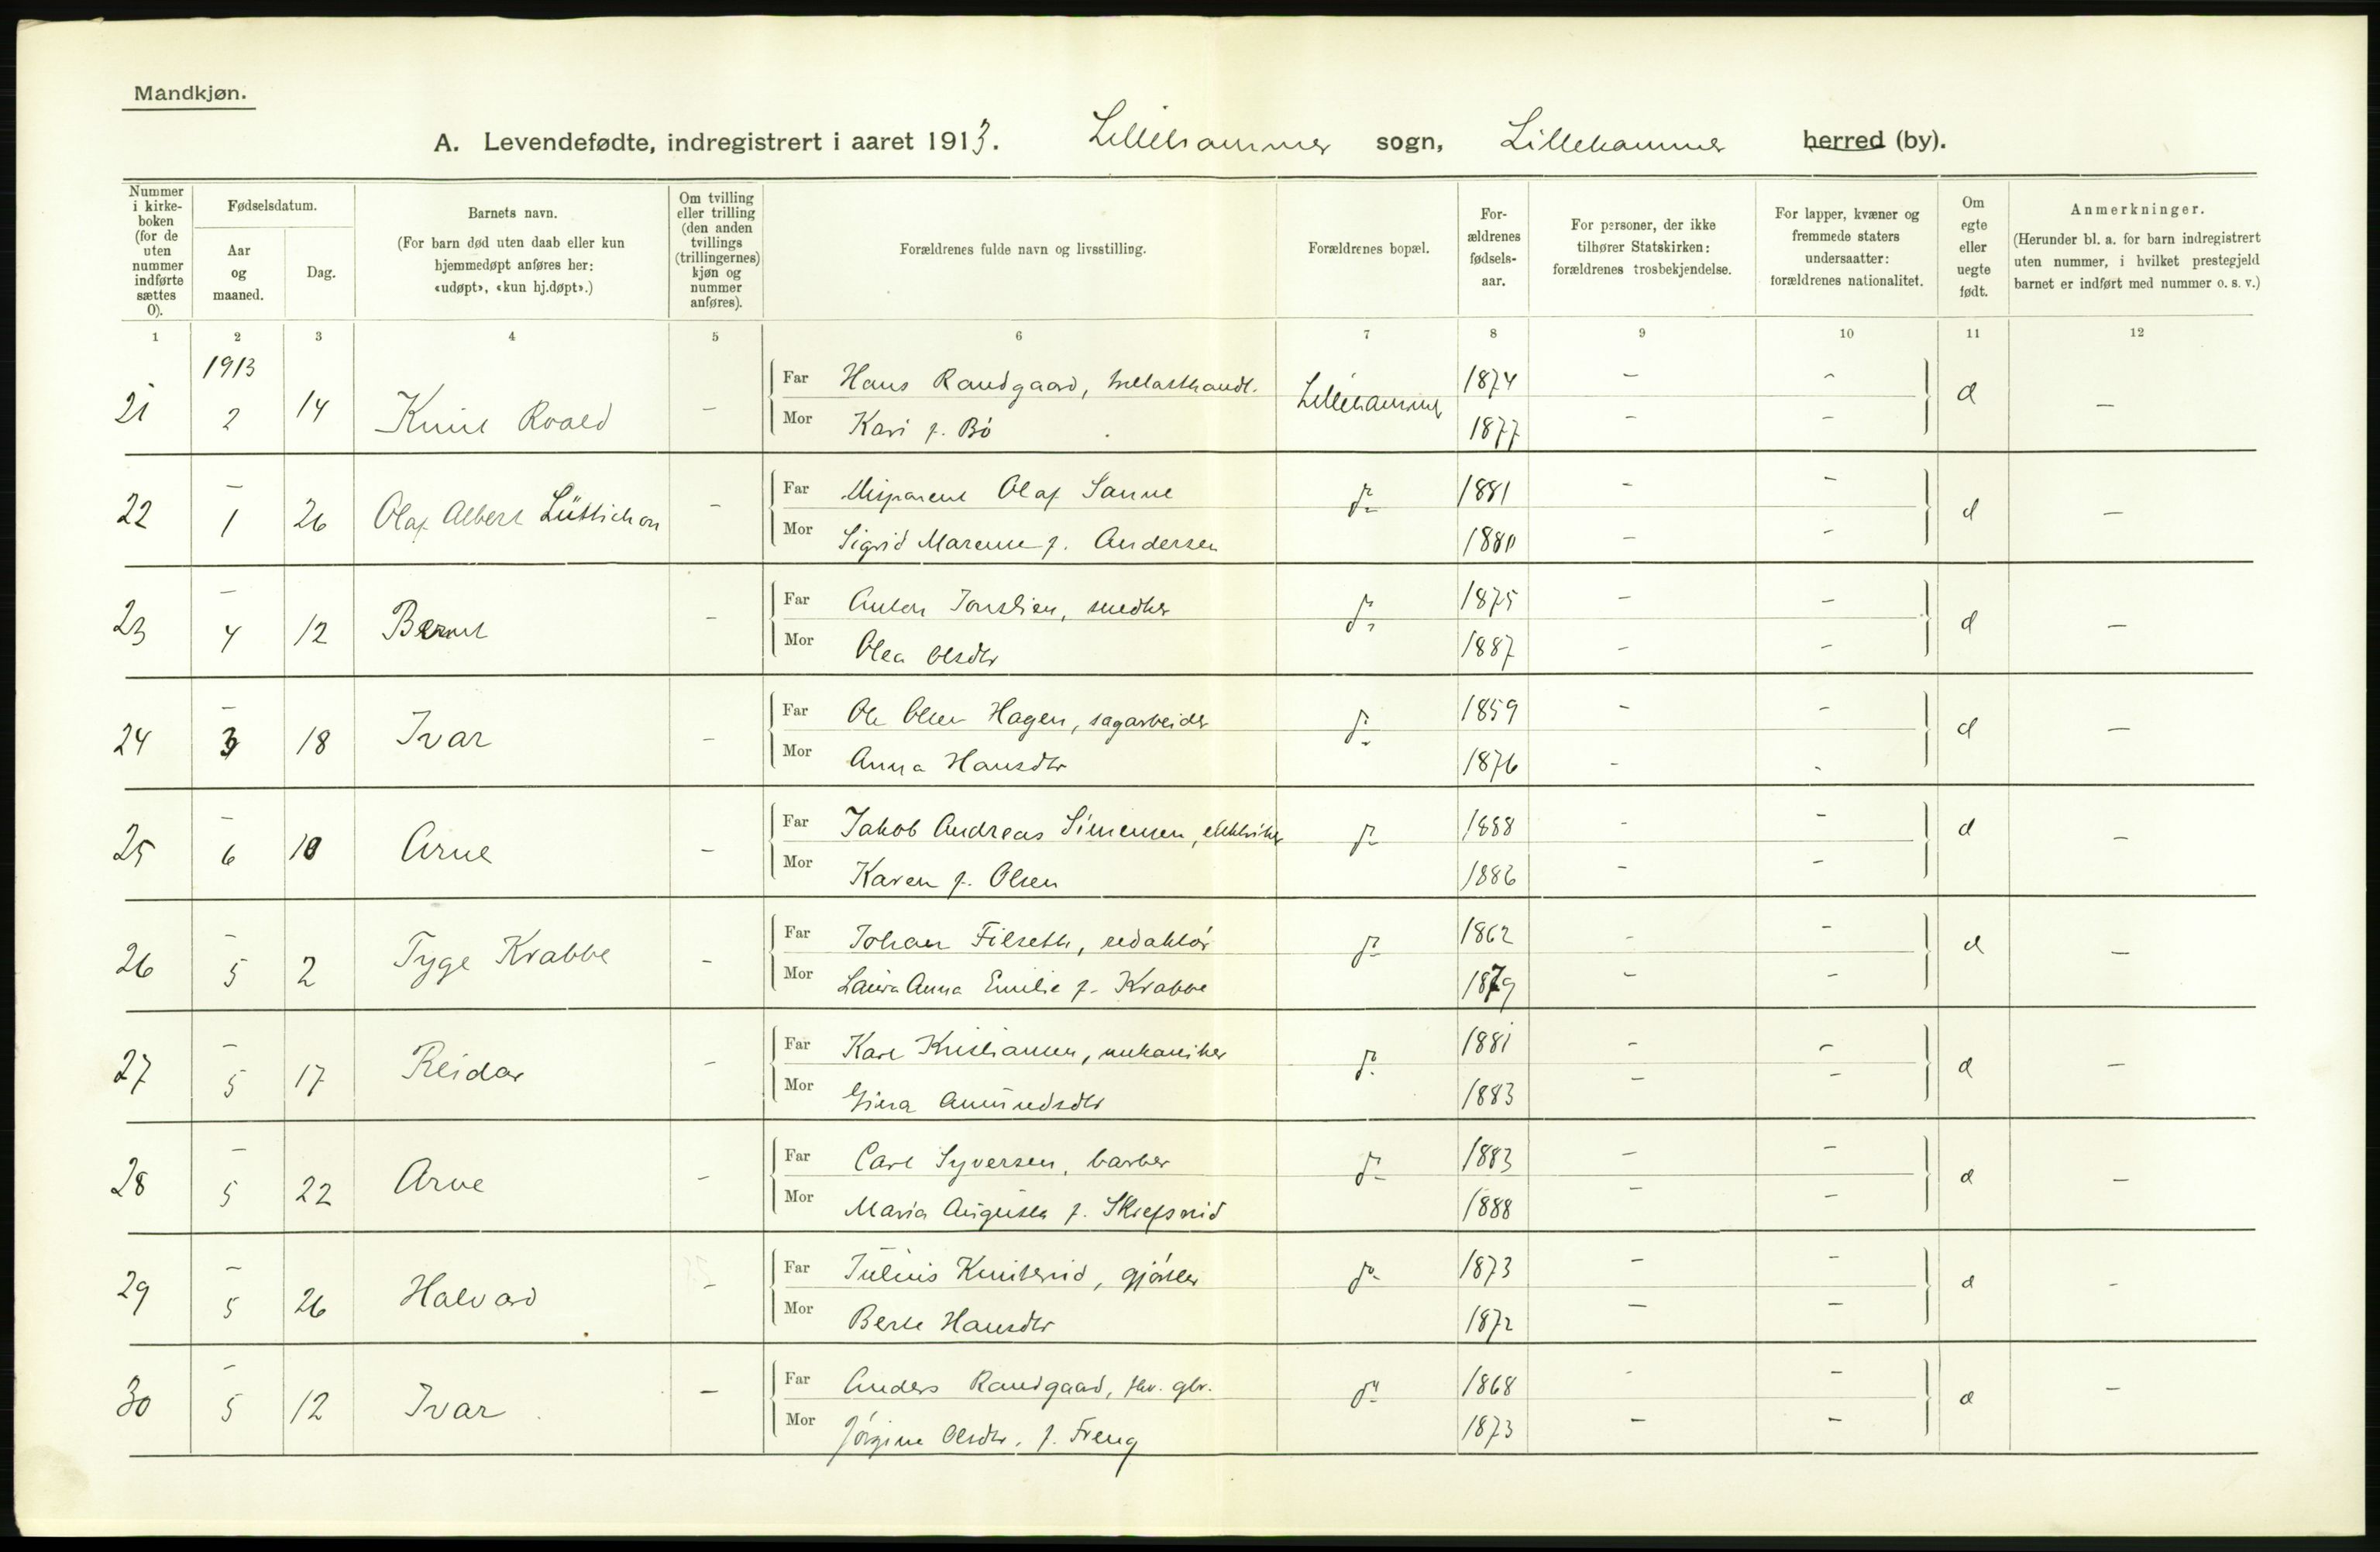 Mandkjøn.
A. Levendefødte, indregistrert i aaret 1913. Lillehammer sogn, Lillehammer herred (by).
Nummer i kirke-boken (for de uten nummer indførte sættes 0).
Fødselsdatum.
Aar og maaned.
Dag.
Barnets navn.
(For barn død uten daab eller kun hjemmedøpt anføres her: «udøpt», «kun hj.døpt».)
Om tvilling eller trilling (den anden tvillings (trillingernes) kjøn og nummer anføres).
Forældrenes fulde navn og livsstilling.
Forældrenes bopæl.
For-ældrenes fødsels-aar.
For personer, der ikke tilhører Statskirken: forældrenes trosbekjendelse.
For lapper, kvæner og fremmede staters undersaatter: forældrenes nationalitet.
Om egte eller uegte født.
Anmerkninger.
(Herunder bl. a. for barn indregistrert uten nummer, i hvilket prestegjeld barnet er indført med nummer o. s. v.)
1 2 3 4 5 6 7 8 9 10 11 12
1913
Far Hans Randgaard, 1874 - -
21 2 14 Knut Roald - Lillehammer d -
Mor Kari f. Bö 1877 - -
- Far Olaf Sanne 1881 - -
22 1 26 Olaf Albert Lüttichon - do d -
Mor Sigrid Marenne f. Andersen 1880 - -
- Far Anton Jonslien, snedker 1875 - -
23 4 12 Bernt - do d -
Mor Olea Olsdtr 1887 - -
- Far Ole Olsen Hagen, sagarbeider 1859 - -
24 3 18 Ivar - do d -
Mor Anna Hansdtr 1876 - -
- Far Jakob Andreas Simensen, elektriker 1888 - -
25 6 10 Arne - do d -
Mor Karen f. Olsen 1886 - -
- Far Johan Filseth, redaktör 1862 - -
26 5 2 Tyge Krabbe - do d -
Mor Laura Anna Emilie f. Krabbe 1879 - -
- Far Karl Kristiansen, mekaniker 1881 - -
27 5 17 Reidar - do d -
Mor Gina Amundsdtr 1883 - -
- Far Carl Syversen, barber 1883 - -
28 5 22 Arve - do d -
Mor Maria Augusta f. Skrefsrud 1888 - -
- Far Julius Knutsrud, gjörtler 1873 - -
29 5 26 Halvard - do d -
Mor Berte Hansdtr 1872 - -
- Far Anders Randgaard, 1868 - -
30 5 12 Ivar - do d -
Mor Jörgine Olsdtr. f. Freng 1873 - -